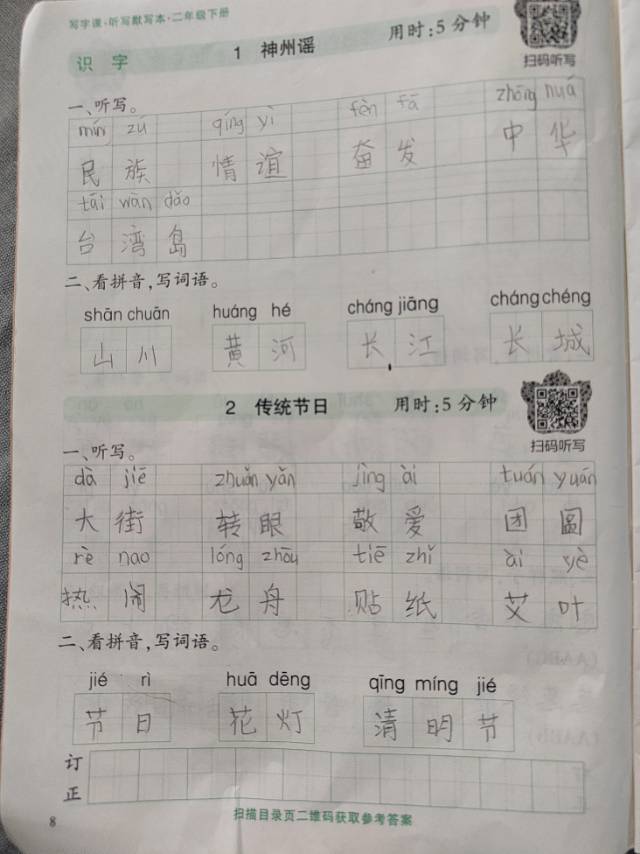 写字课·听写默写本·二年级下册
识 字 1 神州谣 用时:5 分钟
扫码听写
一、听写。
mín zú qíng yì fèn fā zhōng huá
民 族 情 谊 奋 发 中 华
tái wān dǎo
台 湾 岛
二、看拼音,写词语。
shān chuān huáng hé cháng jiāng cháng chéng
山 川 黄 河 长 江 长 城
2 传统节日 用时:5 分钟
扫码听写
一、听写。
dà jiē zhuǎn yǎn jìng ài tuán yuán
大 街 转 眼 敬 爱 团 圆
rè nao lóng zhōu tiē zhǐ ài yè
热 闹 龙 舟 贴 纸 艾 叶
二、看拼音,写词语。
jié rì huā dēng qīng míng jié
节 日 花 灯 清 明 节
订
正
8 扫描目录页二维码获取参考答案